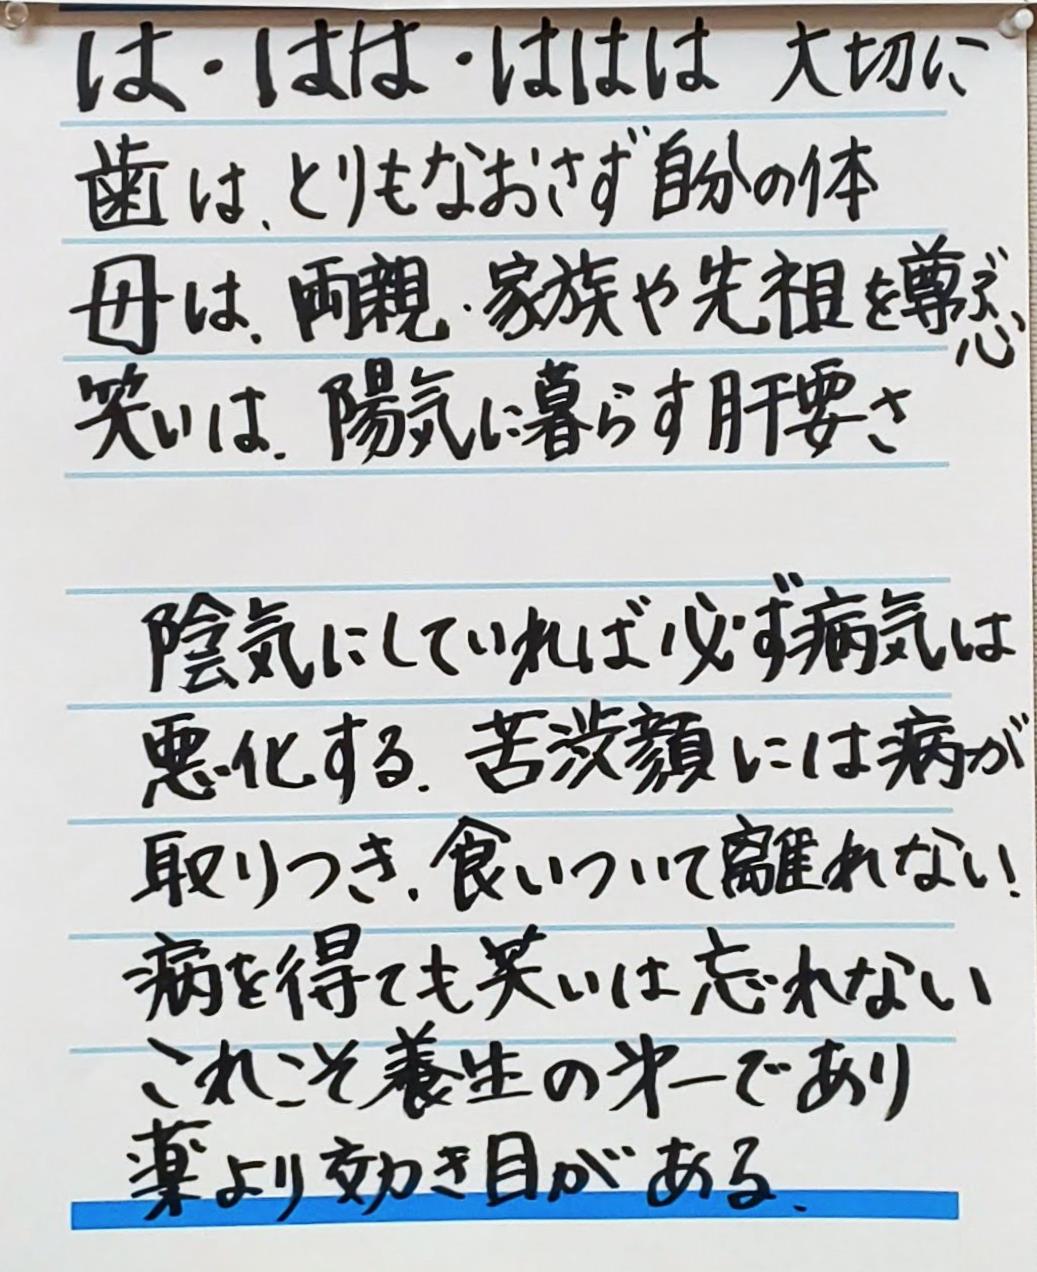 は・はは・ははは 大切に
歯は、とりもなおさず自分の体
母は、両親・家族や先祖を尊ぶ心
笑いは、陽気に暮らす肝要さ
陰気にしていれば必ず病気は
悪化する。苦渋顔には病が
取りつき、食いついて離れない!
病を得ても笑いは忘れない
これこそ養生の㐧一であり
薬より効き目がある。